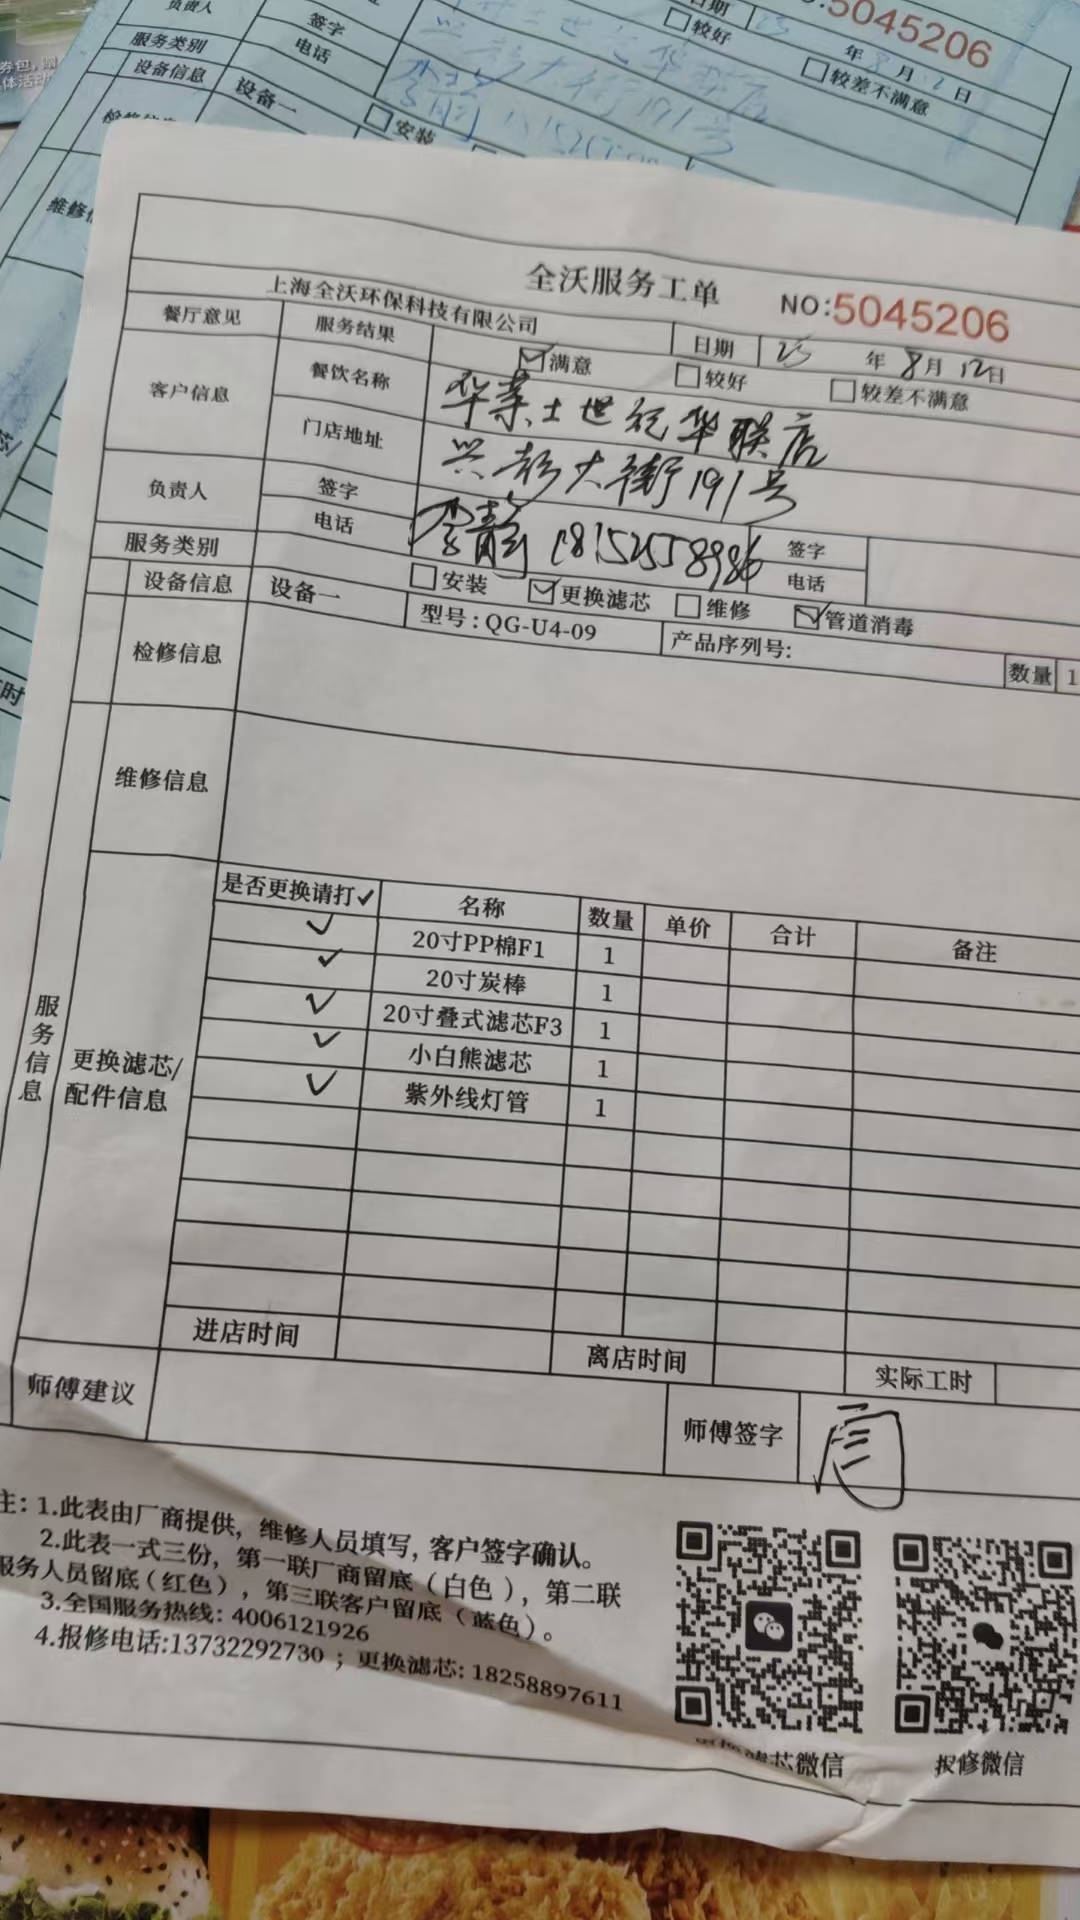 负责人
签字
日期
NO:5045206
服务类别
电话
较好
年8月12日
设备信息
设备一
安装
较差不满意
191号
维修信
全沃服务工单
NO:5045206
上海全沃环保科技有限公司
日期 25年8月12日
餐厅意见 服务结果 ☑满意 □较好 □较差不满意
客户信息 餐饮名称 华莱士世纪华联店
门店地址 兴彭大街191号
负责人 签字 李静 签字
电话 18152558986 电话
服务类别 □安装 ☑更换滤芯 □维修 ☑管道消毒
设备信息 设备一 型号:QG-U4-09 产品序列号: 数量 1
检修信息
维修信息
服务信息
更换滤芯/配件信息
是否更换请打✓ 名称 数量 单价 合计 备注
✓ 20寸PP棉F1 1
✓ 20寸炭棒 1
✓ 20寸叠式滤芯F3 1
✓ 小白熊滤芯 1
✓ 紫外线灯管 1
进店时间 离店时间 实际工时
师傅建议 师傅签字
注:1.此表由厂商提供，维修人员填写，客户签字确认。
2.此表一式三份，第一联厂商留底（白色），第二联
服务人员留底（红色），第三联客户留底（蓝色）。
3.全国服务热线: 4006121926
4.报修电话:13732292730 ；更换滤芯: 18258897611
更换滤芯微信
报修微信